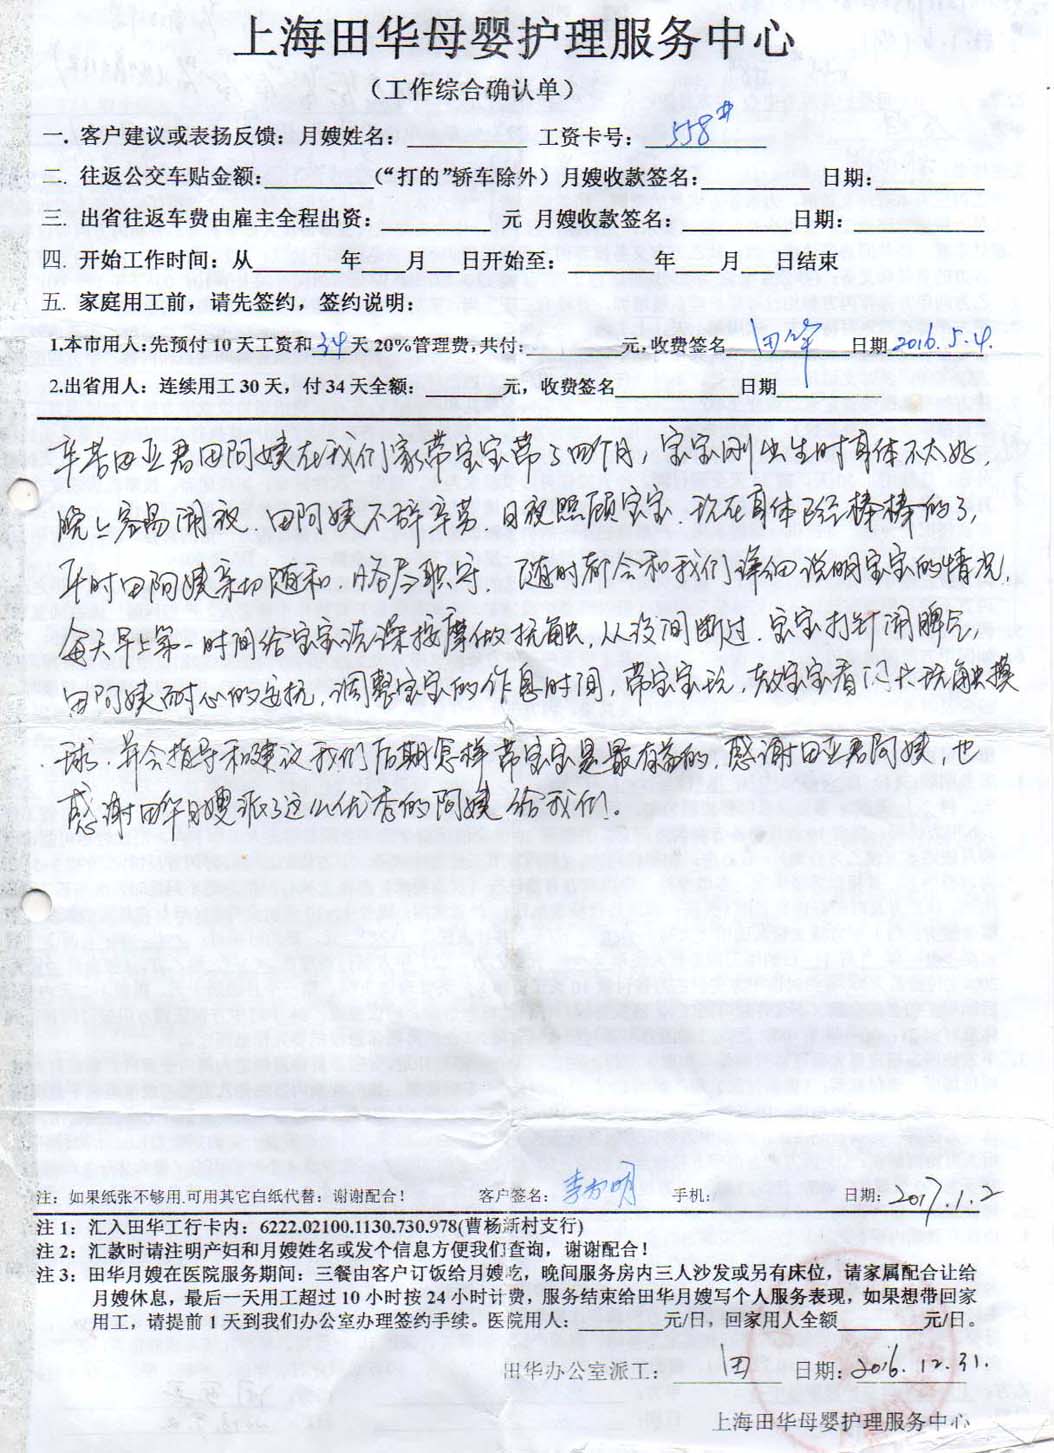 上海田华母婴护理服务中心
（工作综合确认单）
一. 客户建议或表扬反馈：月嫂姓名：__________ 工资卡号：558#
二. 往返公交车贴金额:__________（“打的”轿车除外）月嫂收款签名：__________ 日期：__________
三. 出省往返车费由雇主全程出资：__________ 元 月嫂收款签名：__________ 日期：__________
四. 开始工作时间：从________年____月___日开始至：_______年____月___日结束
五. 家庭用工前，请先签约，签约说明：
1.本市用人:先预付10天工资和34天20%管理费,共付：________元,收费签名 田华 日期2016.5.4.
2.出省用人：连续用工30天，付34天全额：_______元，收费签名__________日期__________
辛苦田亚君田阿姨在我们家带宝宝带了四个月，宝宝刚出生时身体不太好，
晚上容易闹夜．田阿姨不辞辛劳．日夜照顾宝宝．现在身体已经棒棒的了，
平时田阿姨亲切随和．恪尽职守．随时都会和我们详细说明宝宝的情况，
每天早上第一时间给宝宝洗澡按摩做抚触，从没间断过．宝宝打针闹脾气，
田阿姨耐心的安抚，调整宝宝的作息时间，带宝宝玩，教宝宝看闪卡玩触摸
球．并会指导和建议我们后期怎样带宝宝是最有益的，感谢田亚君阿姨，也
感谢田华月嫂派了这么优秀的阿姨给我们。
注：如果纸张不够用.可用其它白纸代替：谢谢配合！ 客户签名： 手机： 日期：2017.1.2
注1：汇入田华工行卡内：6222.02100.1130.730.978(曹杨新村支行)
注2：汇款时请注明产妇和月嫂姓名或发个信息方便我们查询，谢谢配合！
注3：田华月嫂在医院服务期间：三餐由客户订饭给月嫂吃，晚间服务房内三人沙发或另有床位，请家属配合让给
月嫂休息，最后一天用工超过10小时按24小时计费，服务结束给田华月嫂写个人服务表现，如果想带回家
用工，请提前1天到我们办公室办理签约手续。医院用人：_________元/日，回家用人全额_________元/日。
田华办公室派工：田 日期：2016.12.31.
上海田华母婴护理服务中心